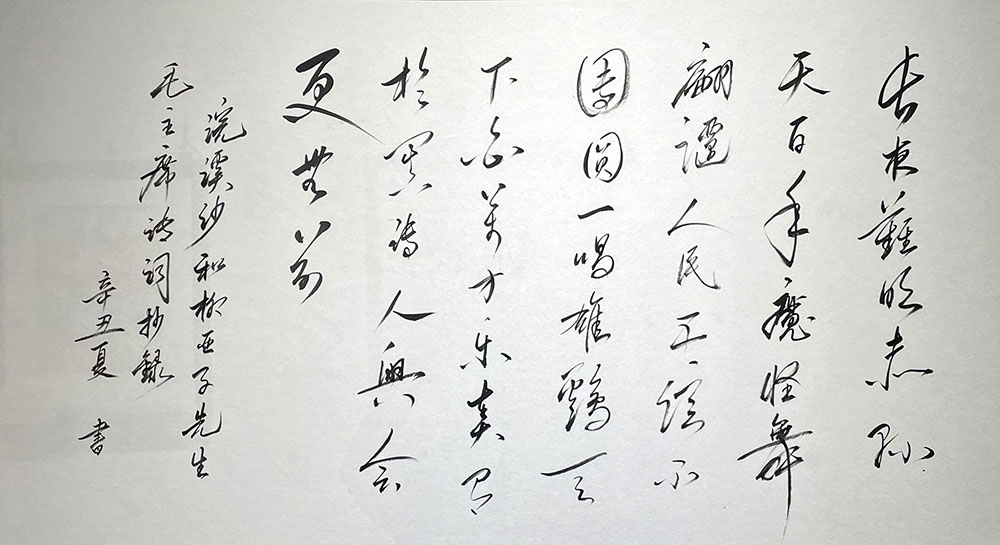 長夜難明赤縣
天百年魔怪舞
翩躚人民五億不
團圓一唱雄鷄天
下白萬方樂奏有
於闐詩人興会
更無前
浣溪紗和柳亚子先生
毛主席詩詞抄録
辛丑夏 書